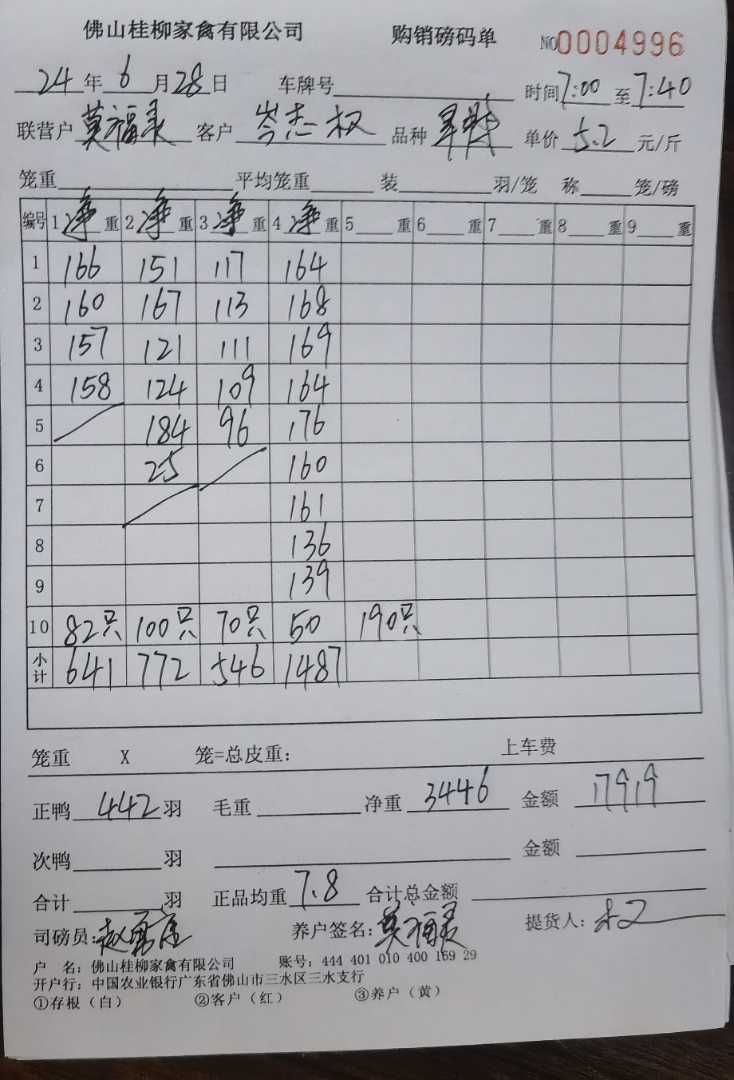 佛山桂柳家禽有限公司 购销磅码单 NO0004996
24年6月28日 车牌号 时间7:00至7:40
联营户莫福灵 客户岑志权 品种 单价5.2元/斤
笼重 平均笼重 装 羽/笼 称 笼/磅
编号 1净重 2净重 3净重 4净重 5 重 6 重 7 重 8 重 9 重
1 166 151 117 164
2 160 167 113 168
3 157 121 111 169
4 158 124 109 164
5 184 96 176
6 25 160
7 161
8 136
9 139
10 82只 100只 70只 50 190只
小计 641 772 546 1487
笼重 X 笼=总皮重: 上车费
正鸭442羽 毛重 净重3446 金额17919
次鸭 羽 金额
合计 羽 正品均重7.8 合计总金额
司磅员: 养户签名:莫福灵 提货人:
户 名: 佛山桂柳家禽有限公司 账号: 444 401 010 400 169 29
开户行: 中国农业银行广东省佛山市三水区三水支行
①存根(白) ②客户(红) ③养户(黄)